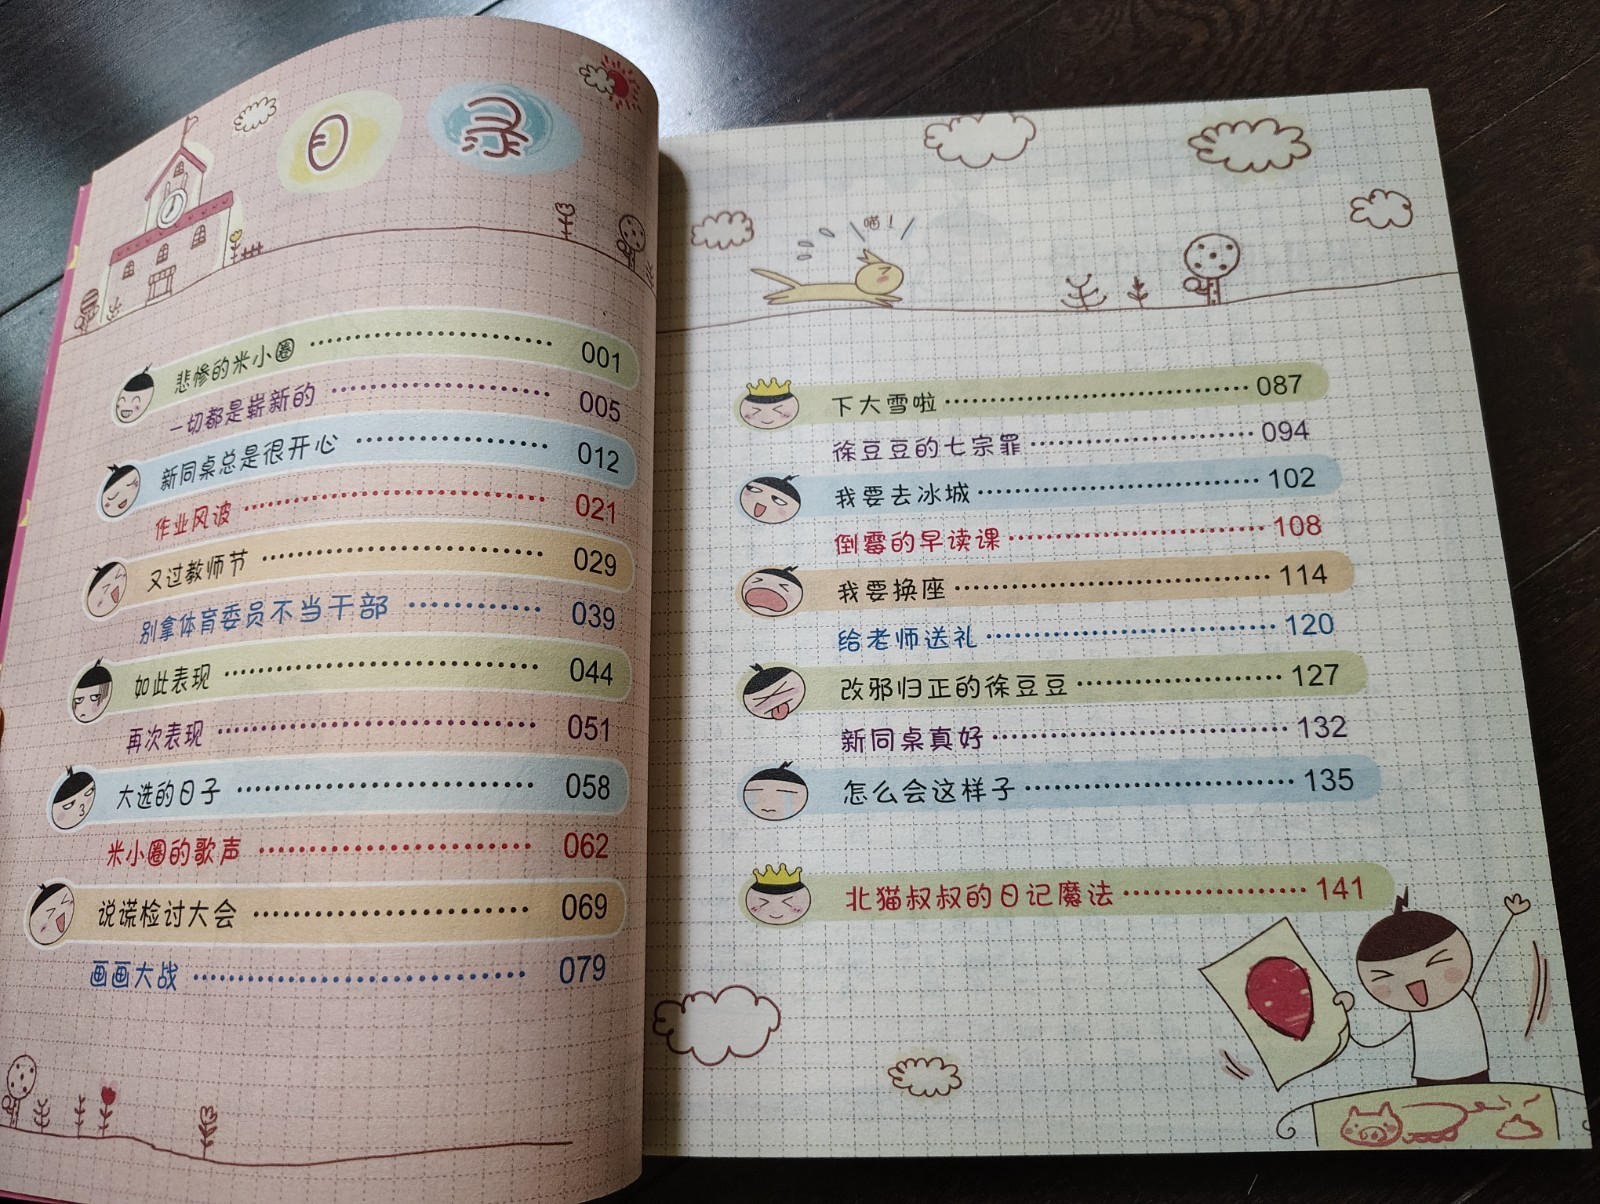 目录
悲惨的米小圈 001
一切都是崭新的 005
新同桌总是很开心 012
作业风波 021
又过教师节 029
别拿体育委员不当干部 039
如此表现 044
再次表现 051
大选的日子 058
米小圈的歌声 062
说谎检讨大会 069
画画大战 079
喵！
下大雪啦 087
徐豆豆的七宗罪 094
我要去冰城 102
倒霉的早读课 108
我要换座 114
给老师送礼 120
改邪归正的徐豆豆 127
新同桌真好 132
怎么会这样子 135
北猫叔叔的日记魔法 141